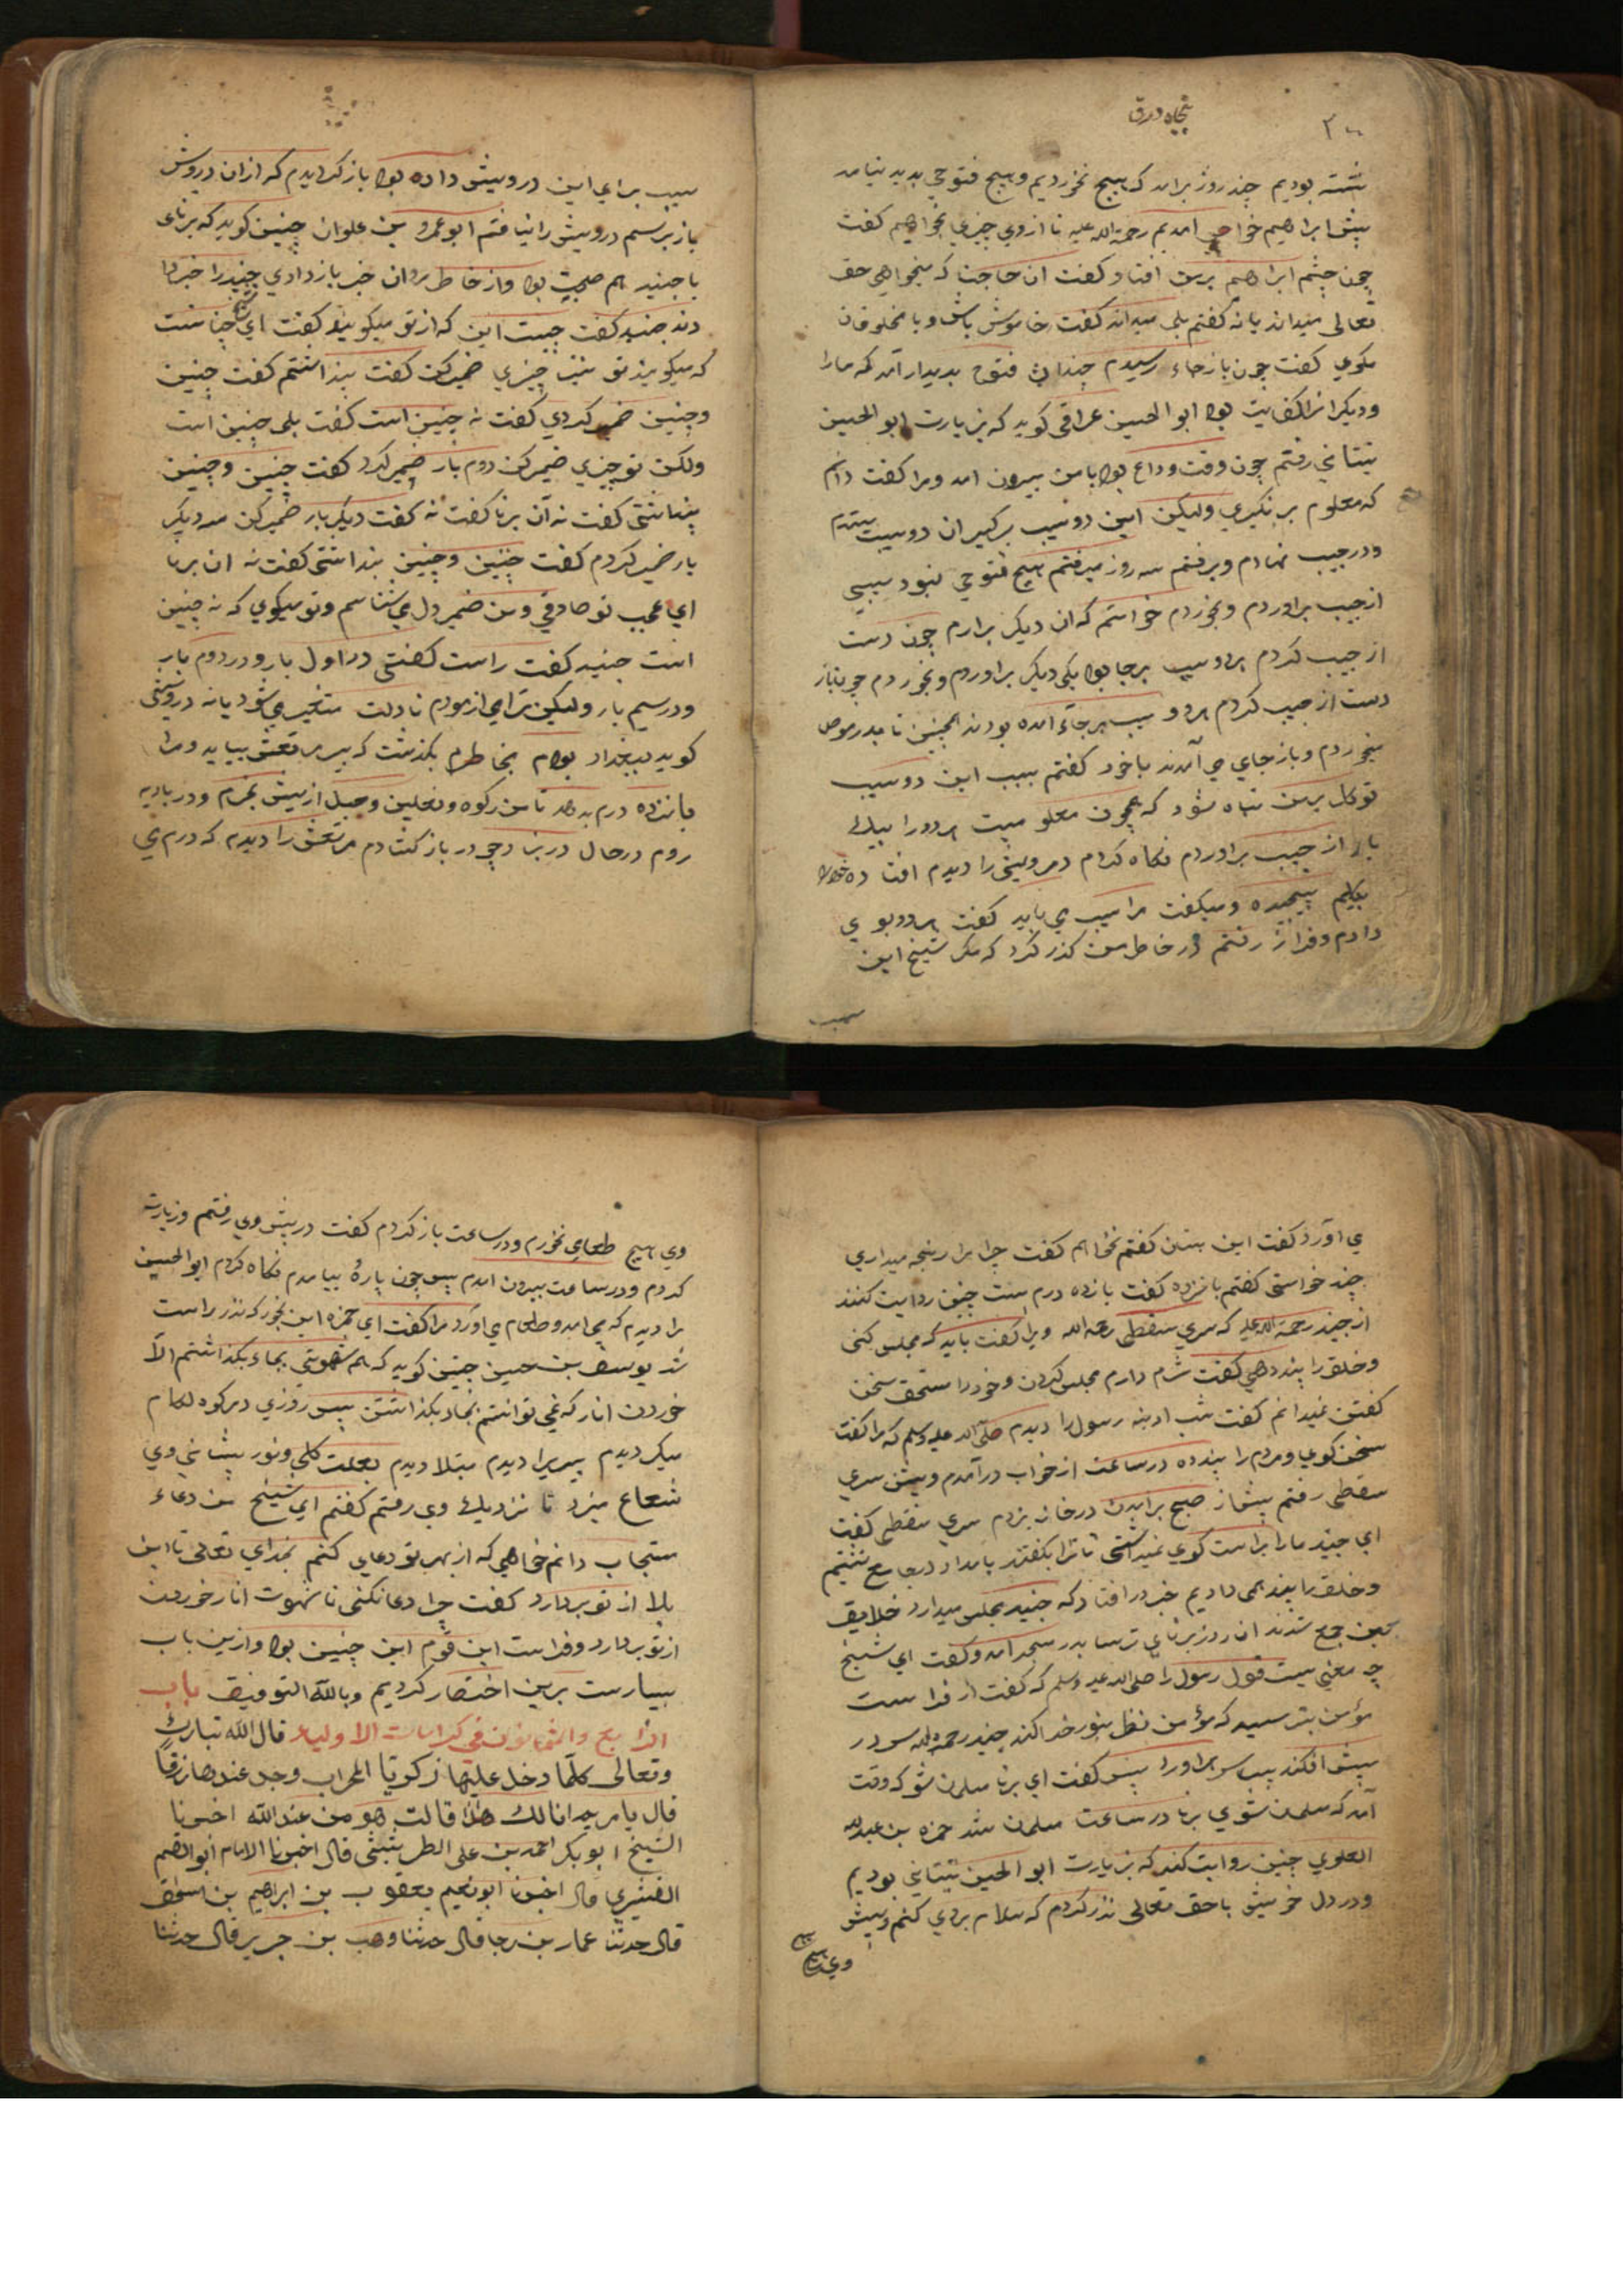 پنجاه ورق
نشسته بودیم چند روز برامد که هیچ نخوردیم و هیچ فتوحی پدید نیامد
پیش ابراهیم خواص امدیم رحمة الله علیه تا ازوی چیزی بخواهیم کفت
چون چشم ابراهیم برمن افتاد کفت ان حاجت که میخواهی حق
تعالی میداند یا نه کفتم بلی میداند کفت خاموش باش و با مخلوقان
مکوی کفت چون باز جاء رسیدم چندان فتوح پدیدار آمد که مارا
ودیکرانرا کفایت بود ابو الحسین عراقی کوید که بزیارت ابو الحسین
تیناتی رفتم چون وقت وداع بود با من بیرون امد ومرا کفت دانم
که معلوم برنکیری ولیکن این دو سیب برکیر ان دو سیب بستدم
ودر جیب نهادم وبرفتم سه روز میرفتم هیچ فتوحی نبود سیبی
از جیب براوردم وبخوردم خواستم که ان دیکر برارم چون دست
از جیب کردم هردو سیب برجا بود یکی دیکر براوردم وبخوردم چون باز
دست از جیب کردم هردو سیب برجاء امده بودند همچنین تا بدر موصل
میخوردم وباز جای می آمدند باخود کفتم سبب این دو سیب
توکل برمن تباه شود که همچون معلومیست هردورا بیک
بار از جیب براوردم نکاه کردم درویشی را دیدم افتاده خودرا
بکلیم پیچیده ومیکفت مرا سیب می باید کفت هردو بوی
دادم وفراز رفتم در خاطر من کذر کرد که مکر شیخ این
سبب
سبب برای این درویش داده بود باز کردیدم که ازان درویش
باز پرسم درویش را نیافتم ابو عمرو بن علوان چنین کوید که برنای
با جنید هم صحبت بود واز خاطر مردمان خبر باز دادی جنید را خبر
دند جنید کفت چیست این که از تو میکویند کفت ای شیخ چنانست
که میکویند تو نیز چیزی ضمیر کن کفت بنداشتم کفت چنین
وچنین ضمیر کردی کفت نه چنین است کفت بلی چنین است
ولکن تو چیزی ضمیر کن دوم بار ضمیر کرد کفت چنین وچنین
پنداشتی کفت نه آن برنا کفت نه کفت دیکر بار ضمیر کن سه دیکر
بار ضمیر کردم کفت چنین وچنین بنداشتی کفت نه ان برنا
ای عجب تو صادقی ومن ضمیر دل می شناسم وتو میکوی که نه چنین
است جنید کفت راست کفتی در اول بار ودر دوم بار
ودر سیم بار ولیکن ترا می ازمودم تا دلت متغیر می شود یا نه درویشی
کوید ببغداد بودم بخاطرم بکذشت که پیر مرتعش بیاید ومرا
پانزده درم بدهد تا من رکوه ونعلین وحبل از پیش بخرم ودر بادیه
روم در حال در بزد چو در باز کشادم مرتعش را دیدم که درم می
می آورد کفت این بستان کفتم نخواهم کفت چرا مرا رنجه میداری
چند خواستی کفتم پانزده کفت پانزده درم ست چنین روایت کنند
از جنید رحمة الله علیه که سری سقطی رحمه الله ویرا کفت باید که مجلس کنی
وخلق را پند دهی کفت شرم دارم مجلس کردن وخودرا مستحق سخن
کفتن نمیدانم کفت شب ادینه رسول را دیدم صلی الله علیه وسلم که مرا کفت
سخن کوی ومردم را پند ده در ساعت از خواب درآمدم وپیش سری
سقطی رفتم پیش از صبح برامدن در خانه بزدم سری سقطی کفت
ای جنید مارا براست کوی نمیداشتی تا ترا بکفتند بامداد در جامع نشستم
وخلق را پند همی دادیم خبر در افتاد که جنید مجلس میدارد خلایق
جمع شدند ان روز برنای ترسا بدر مسجد امد وکفت ای شیخ
چه معنی ست قول رسول را صلی الله علیه وسلم که کفت از فراست
مؤمن بترسید که مؤمن نظر بنور خدا کند جنید رحمه الله سر در
پیش افکند پس سر براورد پس کفت ای برنا مسلمان شو که وقت
آمد که مسلمان شوی برنا در ساعت مسلمان شد حمزه بن عبد الله
العلوی چنین روایت کند که بزیارت ابو الحسین تیناتی بودیم
ودر دل خویش با حق تعالی نذر کردم که سلام بروی کنم وپیش
وی هیچ
وی هیچ طعامی نخورم ودر ساعت باز کردم کفت در پیش وی رفتم وزیارت
کردم ودر ساعت بیرون امدم پس چون پارۀ بیامدم نکاه کردم ابو الحسین
را دیدم که می امد وطعام می اورد مرا کفت ای حمزه این بخور که نذر راست
شد یوسف بن حسین چنین کوید که هر شهوتی بجاء بکذاشتم الّا
خوردن انار که نمی توانستم بجاء بکذاشتن پس روزی در کوه لکام
میکردیدم پیریرا دیدم مبتلا دیدم بعلت کلی ونور پیشانی وی
شعاع میزد تا نزدیک وی رفتم کفتم ای شیخ من دعاء
مستجاب دانم خواهی که از بهر تو دعای کنم بخدای تعالی تا این
بلا از تو بردارد کفت چرا دعا نکنی تا شهوت انار خوردن
از تو بردارد وفراست این قوم این چنین بود وازین باب
بسیارست برین اختصار کردیم وبالله التوفیق باب
الرابع والثمانون فی کرامات الاولیاء قال الله تبارک
وتعالی کلّما دخل علیها زکریّا المحراب وجد عندها رزقاً
قال یا مریم انا لک هذا قالت هو من عند الله اخبرنا
الشیخ ابو بکر احمد بن علی الطریثیثی قال اخبرنا الامام ابو القسم
القشیری قال اخبرنا ابو نعیم یعقوب بن ابراهیم بن اسحق
قال حدثنا عمار بن رجا قال حدثنا وهب بن جریر قال حدثنا